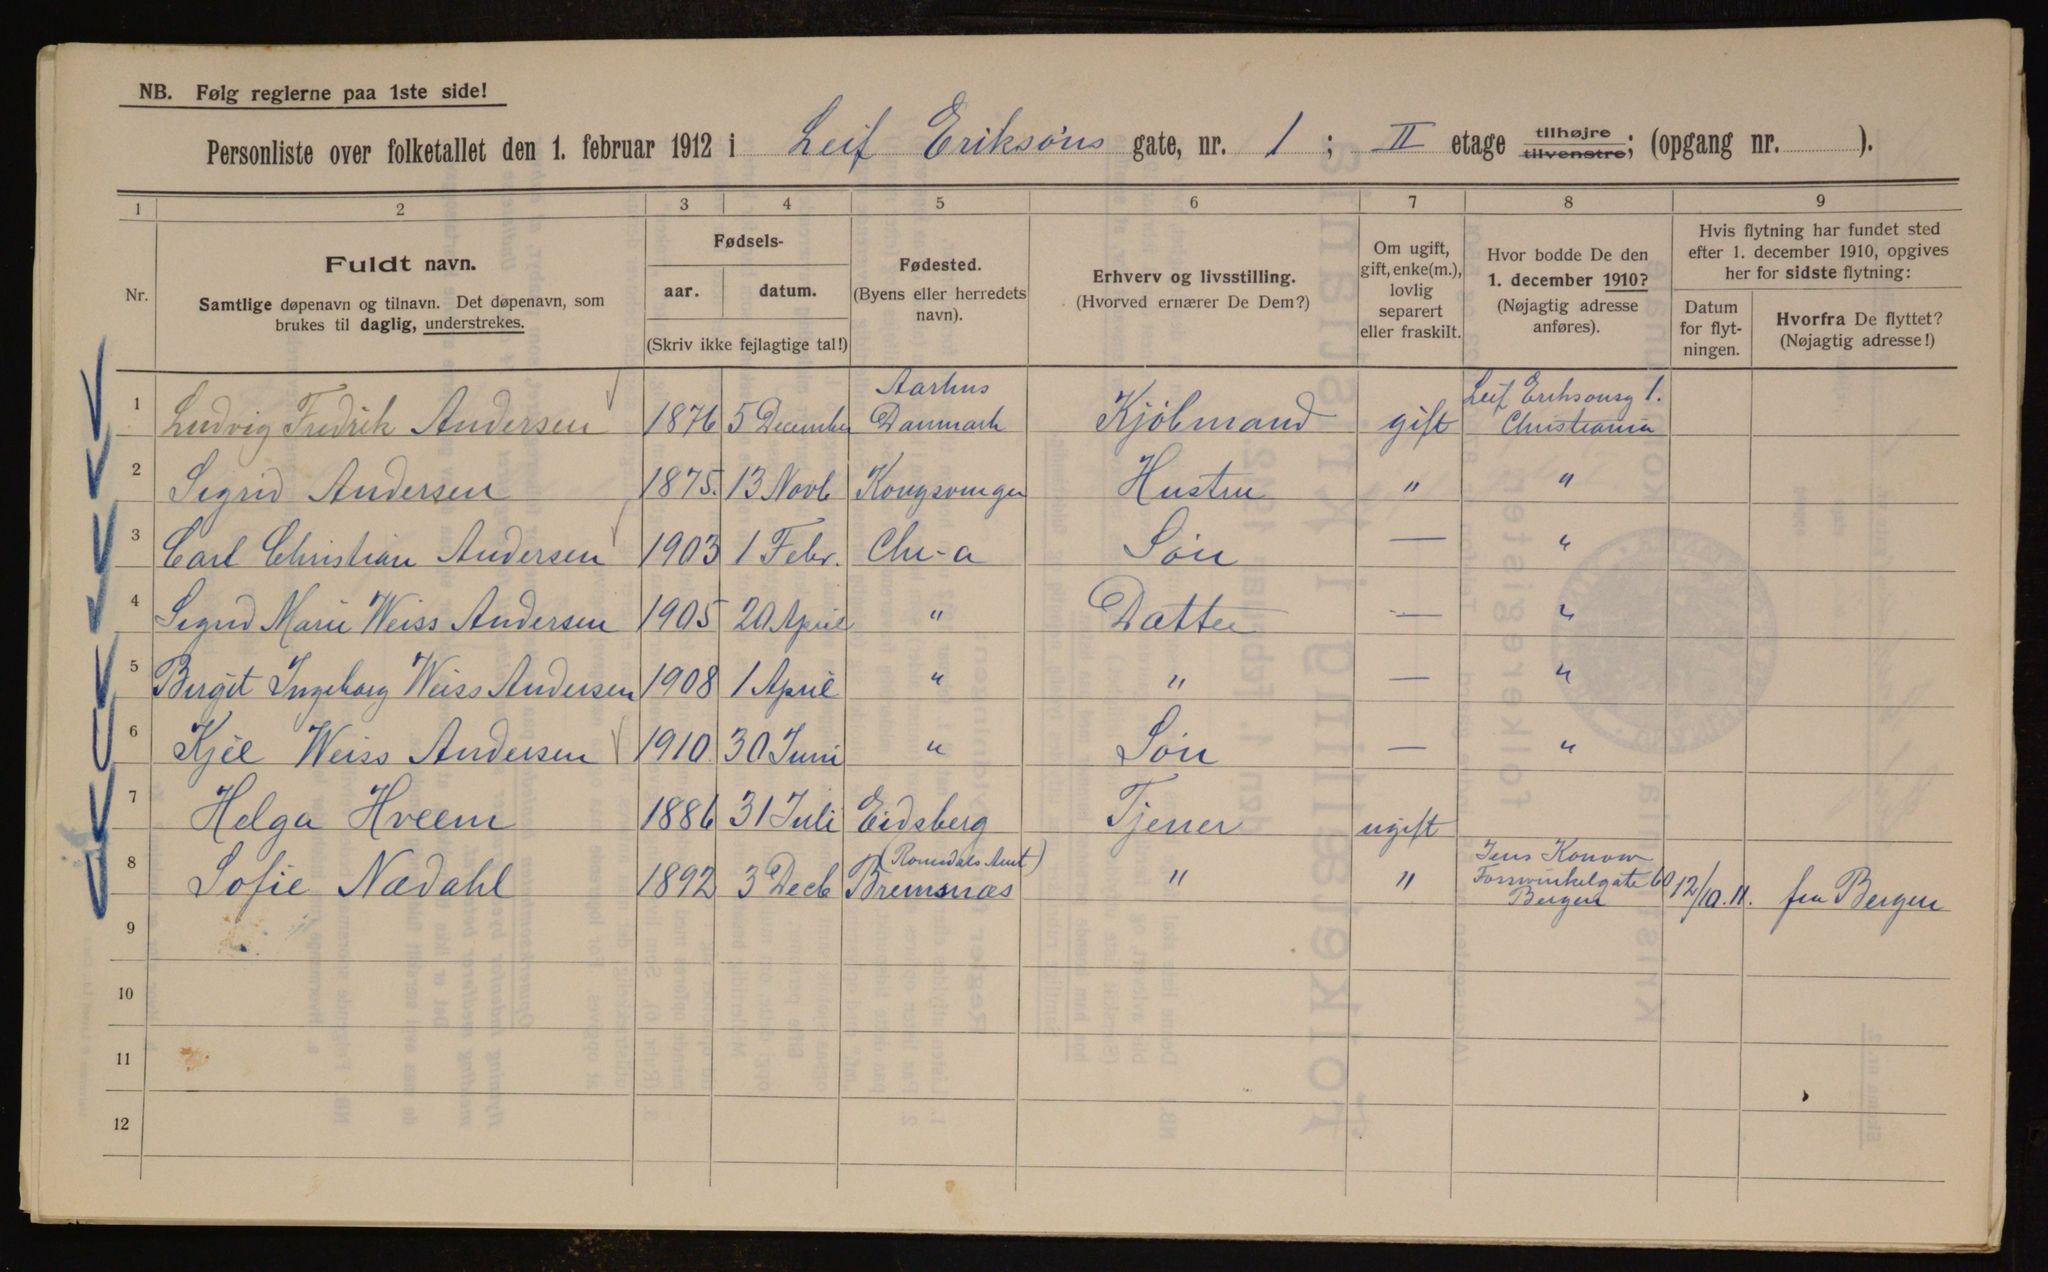 NB. Følg reglerne paa 1ste side!
Personliste over folketallet den 1. februar 1912 i Leif Eriksøns gate, nr. 1; II etage tilhøjre tilvenstre; (opgang nr. ).
1 2 3 4 5 6 7 8 9
Nr.
Fuldt navn.
Samtlige døpenavn og tilnavn. Det døpenavn, som
brukes til daglig, understrekes.
Fødsels-
aar. datum.
(Skriv ikke fejlagtige tal!)
Fødested.
(Byens eller herredets
navn).
Erhverv og livsstilling.
(Hvorved ernærer De Dem?)
Om ugift,
gift, enke(m.),
lovlig
separert
eller fraskilt.
Hvor bodde De den
1. december 1910?
(Nøjagtig adresse
anføres).
Hvis flytning har fundet sted
efter 1. december 1910, opgives
her for sidste flytning:
Datum
for flyt-
ningen.
Hvorfra De flyttet?
(Nøjagtig adresse!)
1 Ludvig Fredrik Andersen 1876 5 December Aarhus Danmark Kjøbmand gift Leif Eriksonsg 1. Christiania
2 Sigrid Andersen 1875. 13 Novb Kongsvinger Hustru " "
3 Carl Christian Andersen 1903 1 Febr. Chr-a Søn — "
4 Sigrid Marie Weiss Andersen 1905 20 April " Datter — "
5 Birgit Ingeborg Weiss Andersen 1908 1 April " " — "
6 Kjel Weiss Andersen 1910 30 Juni " Søn — "
7 Helga Hveem 1886 31 Juli Eidsberg Tjener ugift
8 Sofie Nædahl 1892 3 Decb (Romsdals Amt) Bremsnæs " " Jens Konow Forswinkelgate 60 Bergen 12/10.11. fra Bergen
9
10
11
12